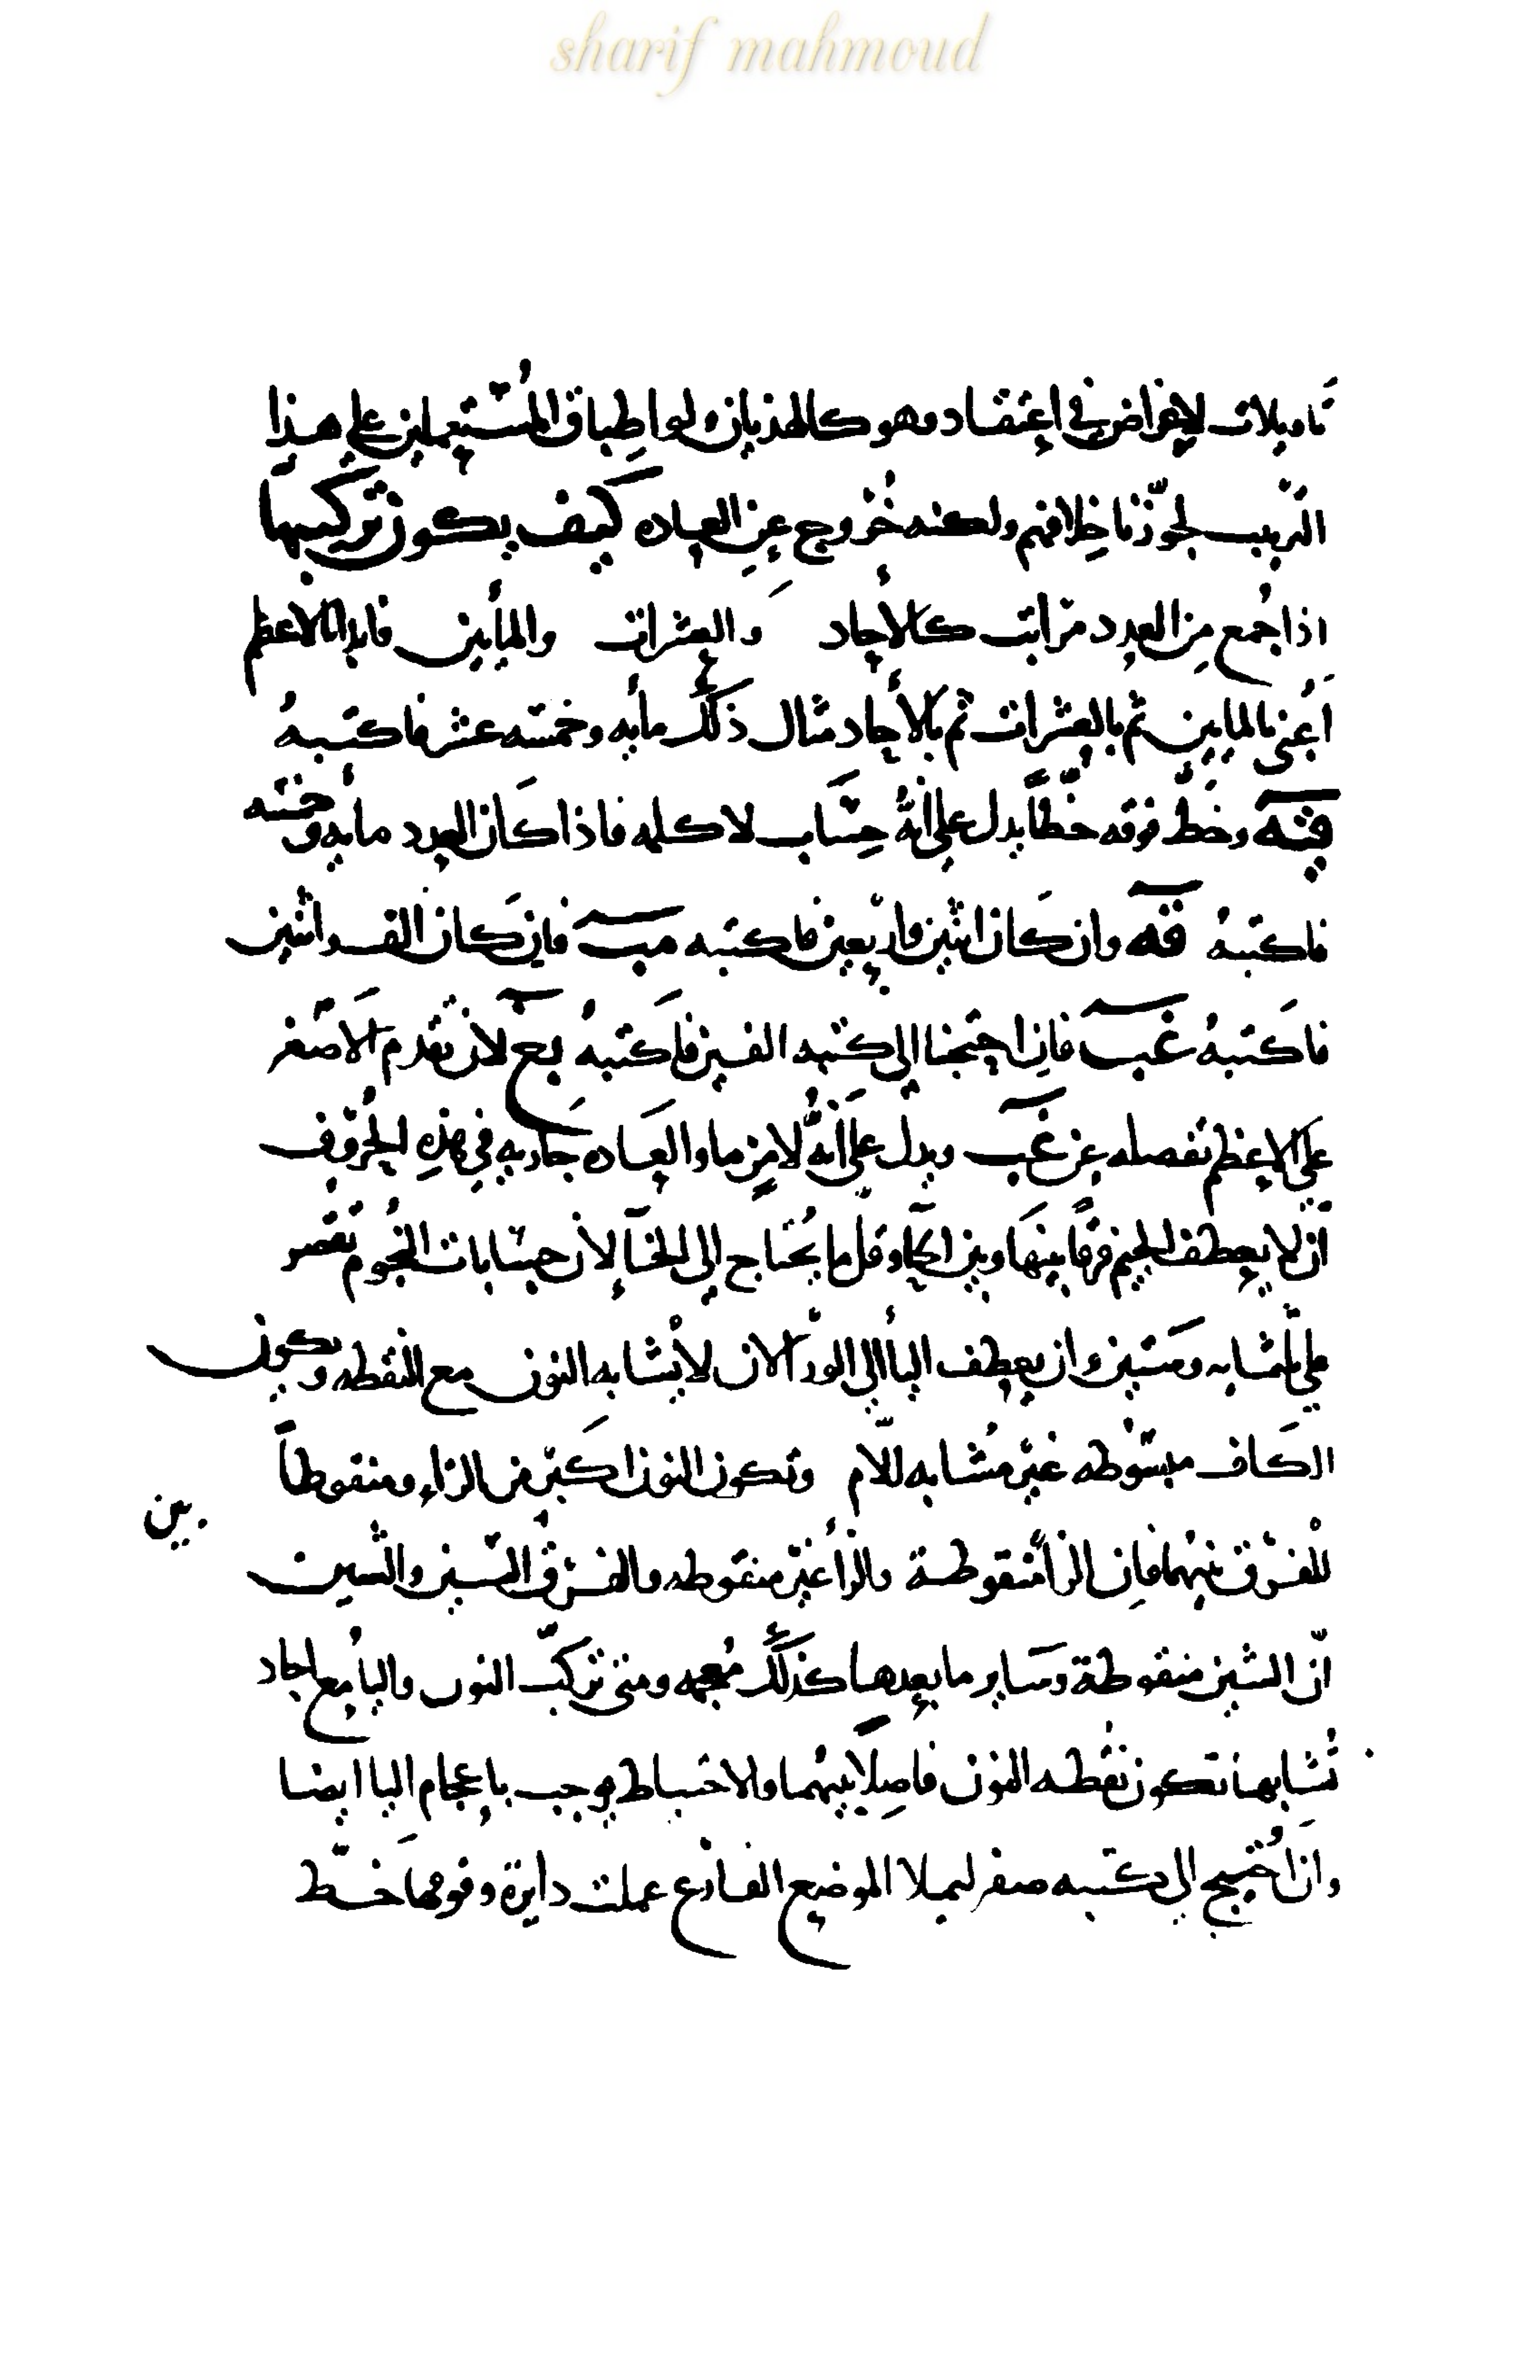 sharif mahmoud
تاويلات لاغراض في اعتقاد وهو كالهذيان ولو اطباق المستعملين على هذا
الترتيب لجوّزنا خلافهم ولكنه خروج عن العاده كيف يكون تركيبها
اذا جمع من العدد مراتب كالأحاد والعشرات والمأين فابدا بالاعظم
اعني بالمايين ثم بالعشرات ثم بالأحاد مثال ذلك مأيه وخمسه عشر فاكتبهُ
قيه وخطّ فوقه خطّاً يدل على انهُ حساب لا كلمه فاذا كان العدد مأيه وخمسه
فاكتبهُ قه وان كان اثنين واربعين فاكتبه مب فان كان الف واثنين
فاكتبهُ غب فان احتجنا الى كتبه الفين فاكتبهُ بغ لان تقدم الاصغر
على الاعظم تفصله عن غب ويدل على انهُ لا من ما والعاده جاريه في هذه الحروف
ان لا يعطف الجيم فرقاً بينها وبين الحآ وقل ما يُحتاج الى الخآ لان حسابات النجوم تقصر
على ثلثمايه وستين وان يعطف اليأ الى الورآ لان لا يشابه النون مع النقطه ويكون
الكاف مبسوطه غير مُشابه للّام وتكون النون اكبر من الزاء ومنقوطاً
للفرق بينهما فان الزأ منقوطة والرأ غير منقوطه والفرق بين السين والشين
انّ الشين منقوطة وساير ما بعدها كذلك مُعجمه ومتى تركب النون واليأ مع احاد
تُشابهها تكون نقطه النون فاصلاً بينهما والاحتياط يوجب باعجام اليا ايضا
وان احُتيج الى كتبه صفر ليملا الموضع الفارغ عملت دأيرة وفوقها خطّ